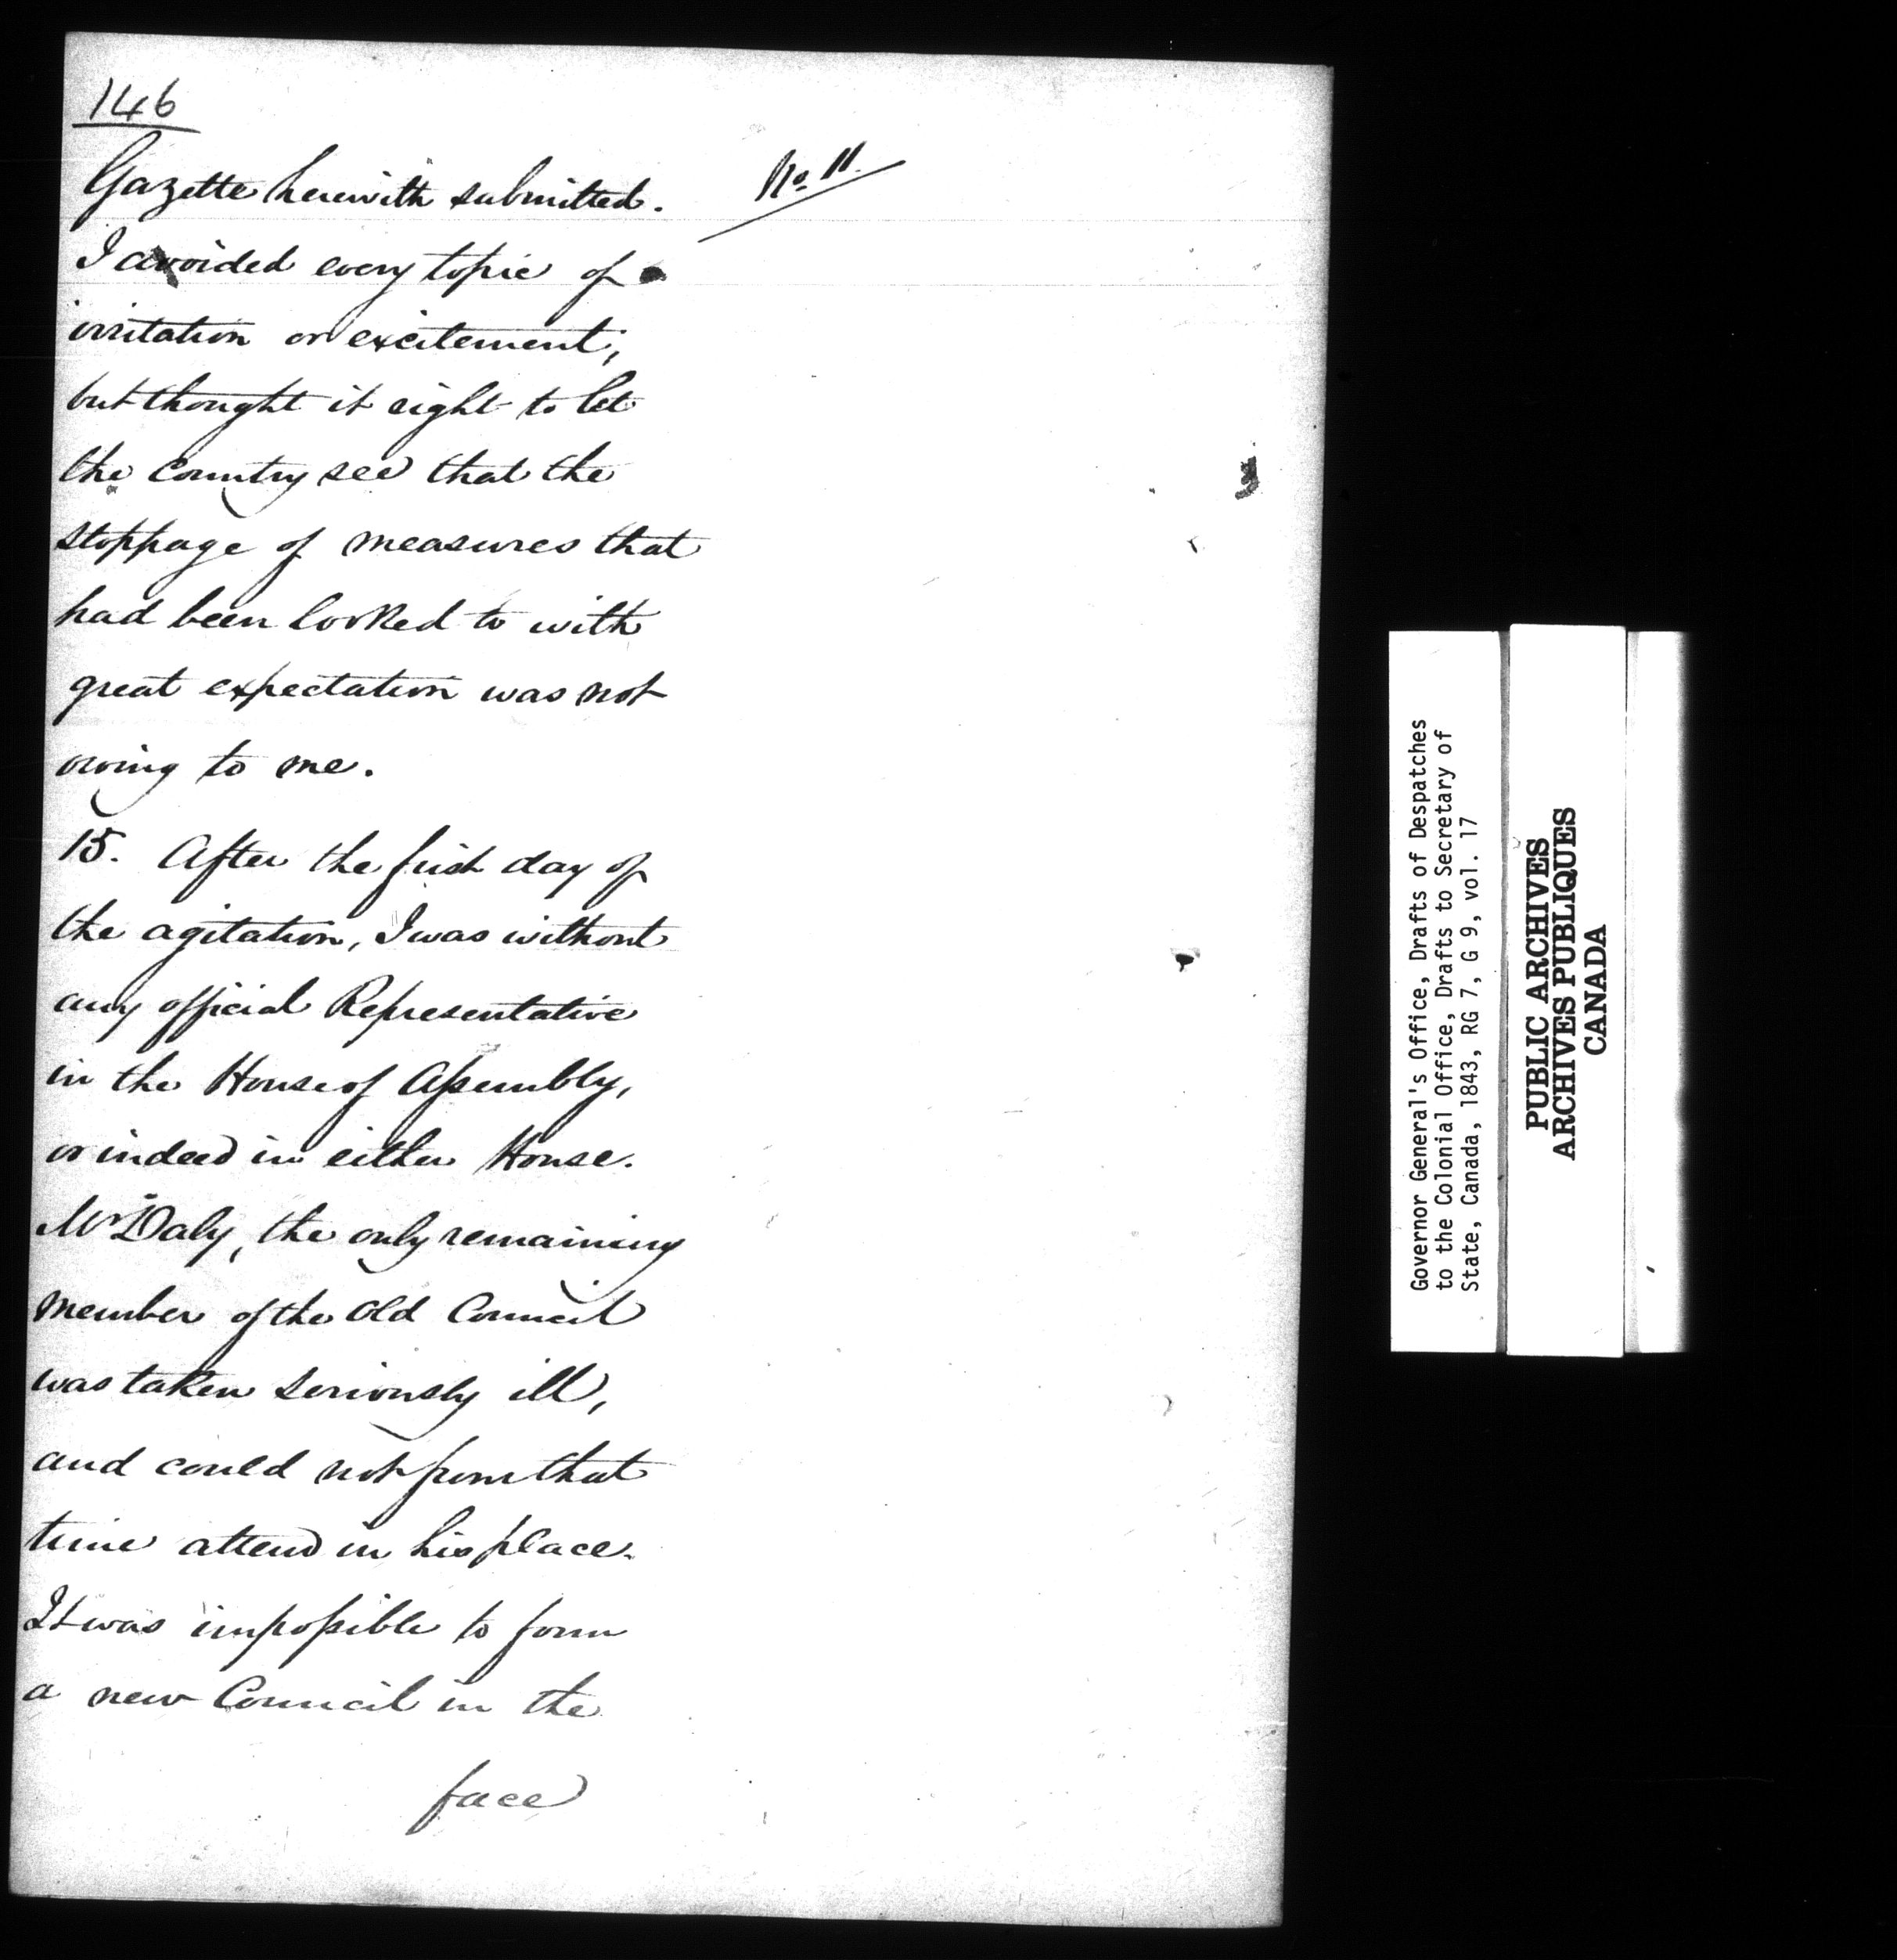 146
Gazette herewith submitted.
No. 11.
I avoided every topic of
irritation or excitement,
but thought it right to let
the Country see that the
stoppage of measures that
had been looked to with
great expectation was not
owing to me.
15. After the first day of
the agitation, I was without
any official Representative
in the House of Assembly,
or indeed in either House.
Mr Daly, the only remaining
member of the Old Council
was taken seriously ill,
and could not from that
time attend in his place.
It was impossible to form
a new Council in the
face
Governor General's Office, Drafts of Despatches
to the Colonial Office, Drafts to Secretary of
State, Canada, 1843, RG 7, G 9, vol. 17
PUBLIC ARCHIVES
ARCHIVES PUBLIQUES
CANADA